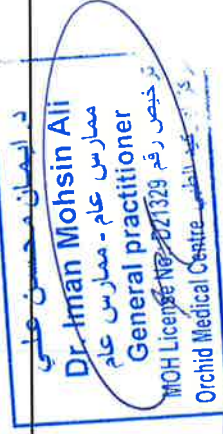 د. ايمان محسن علي
Dr. Iman Mohsin Ali
ممارس عام - ممارس عام
General practitioner
ترخيص رقم
MOH License No. D21329
Orchid Medical Centre